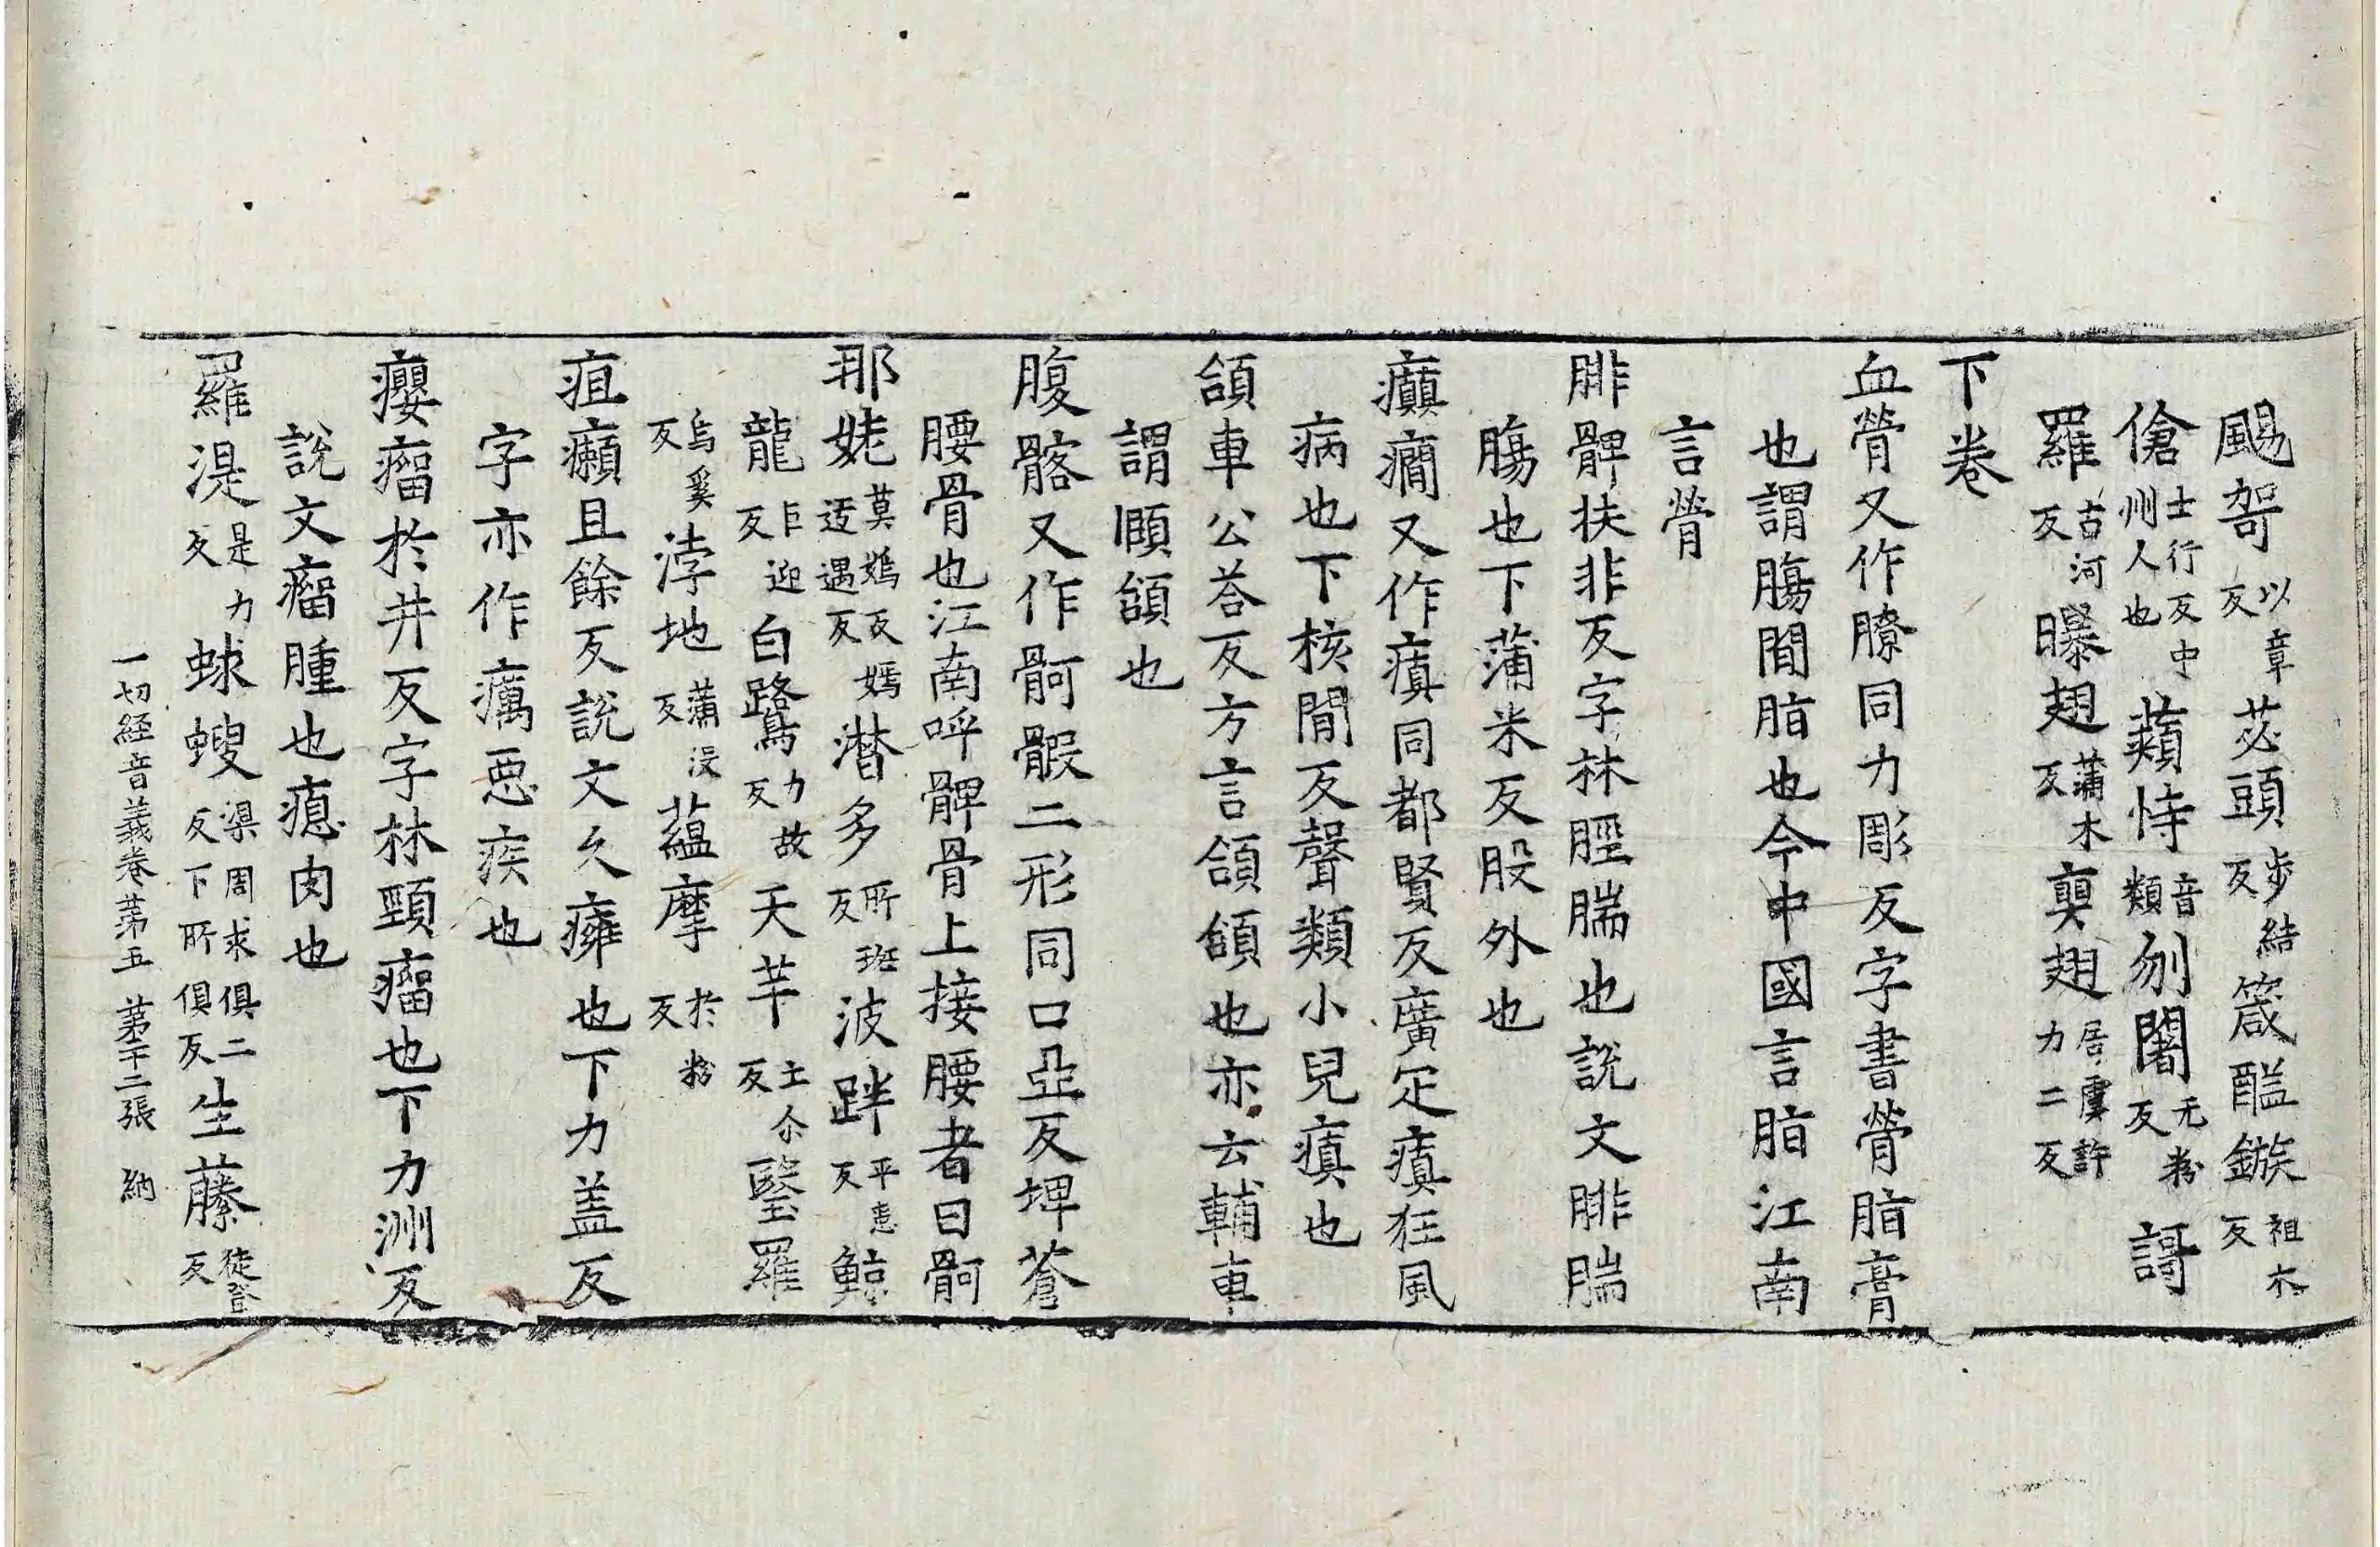 颺哿以章反苾頭步結反箴醢鏃祖木反
傖士行反中州人也蘱恃音類刎闍无粉反謌
羅古河反曝翅蒲木反㚖翅居虞許力二反
下卷
血膋又作膫同力彫反字書膋脂膏
也謂腸間脂也今中國言脂江南
言膋
腓髀扶非反字林脛腨也說文腓腨
腸也下蒲米反股外也
癲癇又作瘨同都賢反廣疋瘨狂風
病也下核閒反聲類小兒瘨也
頷車公荅反方言頷頜也亦云輔車
謂頤頜也
腹髂又作骻𩩱二形同口亞反埤蒼
腰骨也江南呼髀骨上接腰者曰骻
那㛂莫鴳反嫣遮遇反潛多所班反波跘平恚反鯨
龍巨迎反白鷺力故反天芉土尒反毉羅
烏奚反浡地蒲沒反蘊摩於粉反
疽癩且餘反說文久癰也下力盖反
字亦作癘惡疾也
癭瘤於井反字林頸瘤也下力洲反
說文瘤腫也瘜肉也
羅湜是力反蛷螋渠周求俱二反下所俱反生藤徒登反
一切經音義卷第五　第二十二張　納